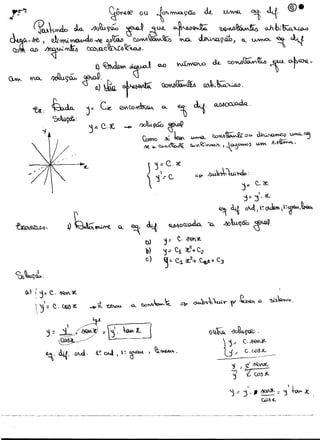 Gênese ou formação de uma eq. dif.
Partindo da solução geral que apresenta constantes arbitrárias
chega-se, eliminando-se estas constantes na derivação, a uma eq. dif
com as seguintes características.
i) Ordem igual ao número de constantes que apare-
cem na solução geral.
ii) Não apresenta constantes arbitrárias.
Ex: Dada y = Cx encontrar a eq dif associada.
Solução:
y = C.x → solução geral
Como só tem uma constante derivamos uma eq
y
x
{ y = C.x
{ y' = C
⇒ substituindo:
y = C.x
y = y'.x
eq dif ord, 1ª ordem, 1º grau, linear
Exercício: 1) Determine a eq dif associada a solução geral
a) y = C. senx
b) y = C1 x² + C2
c) y = C1 x² + C2x + C3
Solução:
a) { y = C. senx
{ y' = C. cosx → só temos a constante ⇒ substituir p/ fazer o sistema.
tgx
y = y'/cosx . senx = y'. tanx
eq. dif. ord. 1ª ord, 1º grau, linear.
outra solução:
{ y = C. senx
{ y' = C. cosx
y/y' = C senx/C cosx
y = y'. senx/cosx = y' tanx